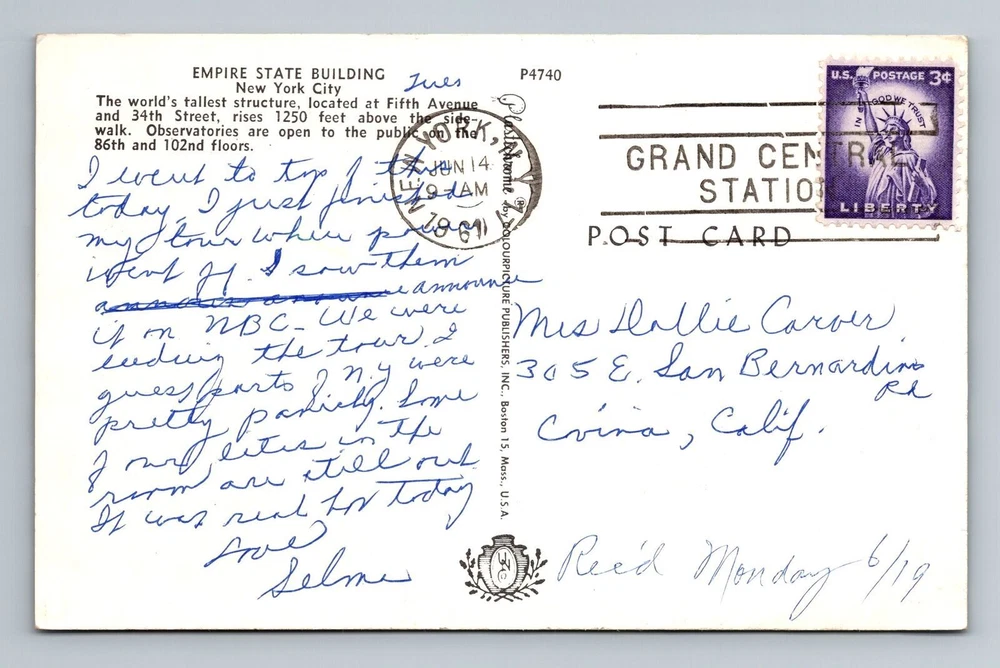 EMPIRE STATE BUILDING
New York City
The world's tallest structure, located at Fifth Avenue
and 34th Street, rises 1250 feet above the side-
walk. Observatories are open to the public on the
86th and 102nd floors.
Tues
P4740
I went to top of this
today. I just finished
my tour when power
went off. I saw them
announce
it on NBC - We were
the tour. I
guess parts of N.Y were
pretty panicky. Some
of our lites in the
room are still out
It was real hot today
Love
Selma
Plastichrome ® by COLOURPICTURE PUBLISHERS, INC., Boston 15, Mass., U.S.A.
NEW YORK, N.Y.
JUN 14
9 - AM
1961
GRAND CENTRAL
STATION
U.S. POSTAGE 3¢
IN GOD WE TRUST
LIBERTY
POST CARD
Mrs Dollie Carver
305 E. San Bernardino
Rd
Covina, Calif.
Rec'd Monday 6/19